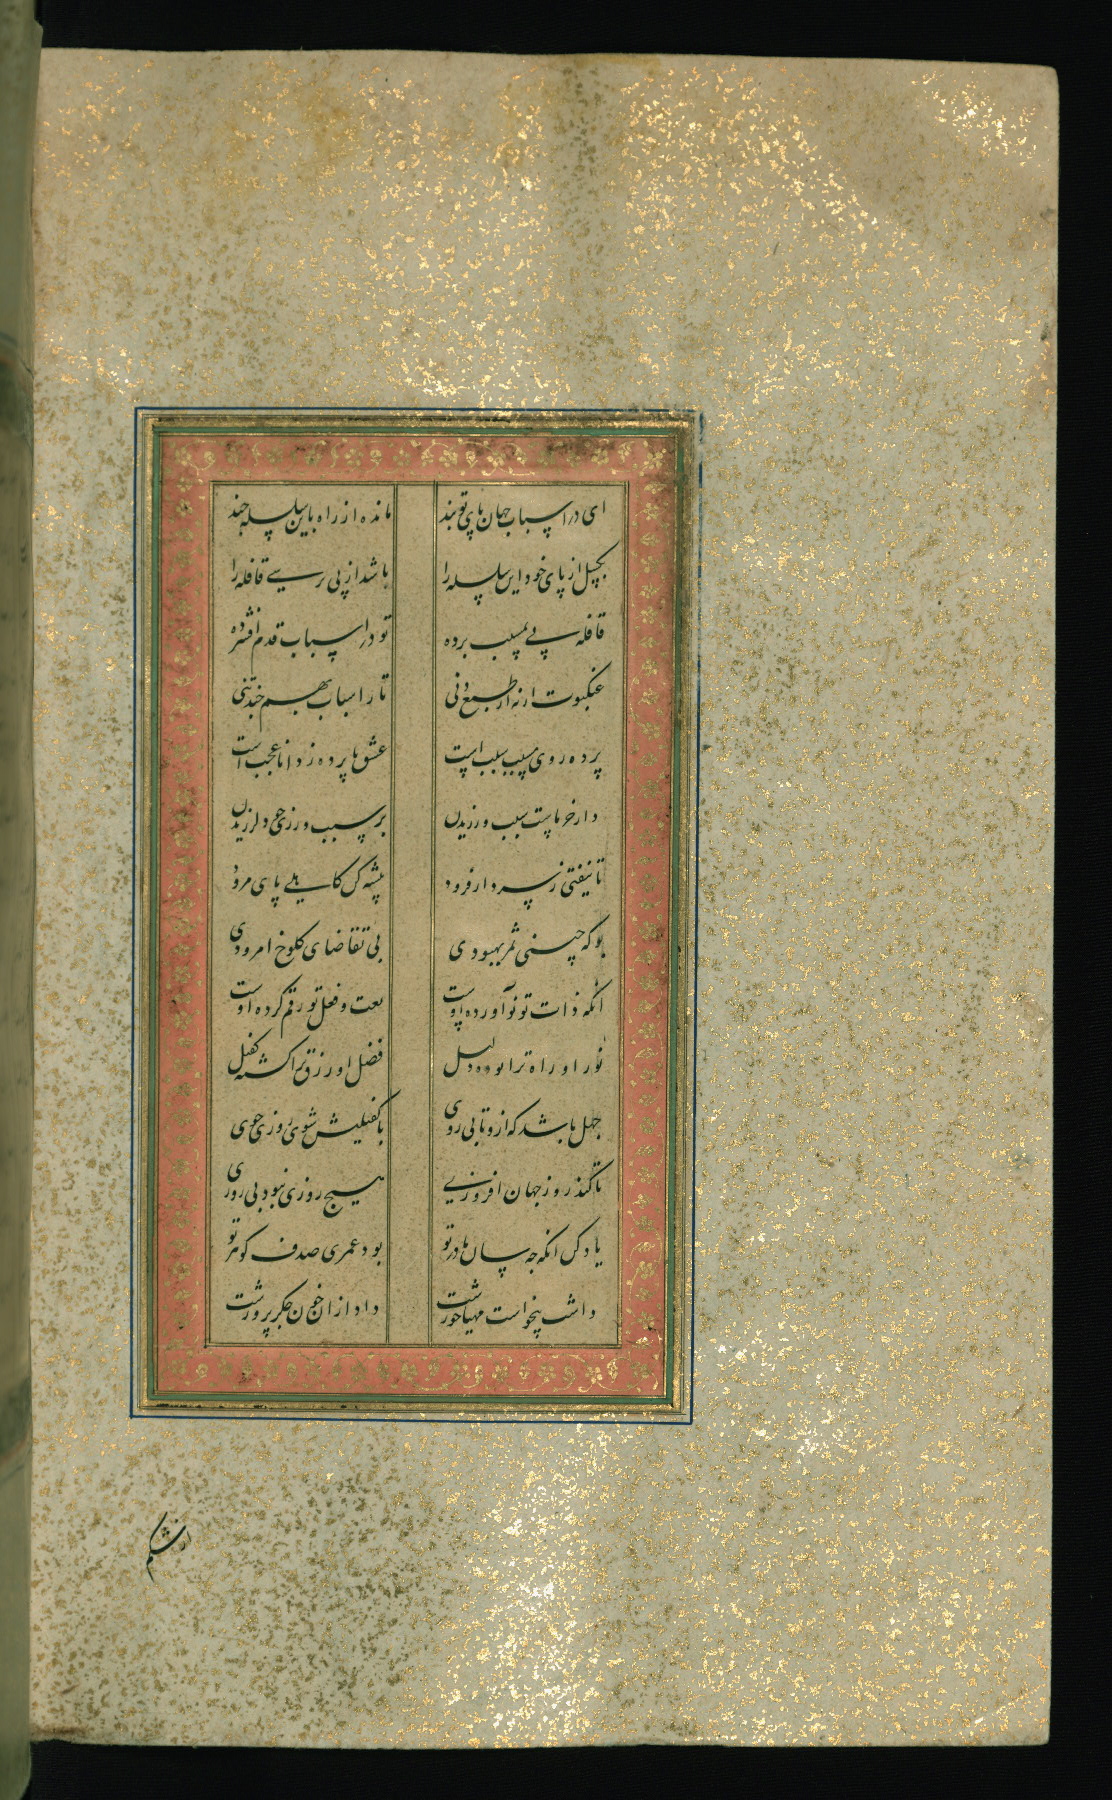 ای در اسباب جهان پای تو بند مانده از راه باین سلسله چند
بگسل از پای خود این سلسله را باشد از پی رسی قافله را
قافله پی بمسبب برده تو در اسباب قدم افشرده
عنکبوت ار نه از طبع دنی تار اسباب بهم چند تنی
پرده روی مسبب سبب است عشق با پرده ز دانا عجب است
دار خو با سبب ورزیدن بر سبب ورزی خود لرزیدن
تا نیفتی ز سر دار فرود پیشه کن کاهلی پای مرود
بو که چینی ثمر بهبودی بی تقاضای کلوخ امرودی
آنکه ذات تو نو آورده اوست نعت و فعل تو رقم کرده اوست
نور او راه ترا بوده دلیل فضل او رزق ترا گشته کفیل
جهل باشد که ازو تابی روی با کفیلیش شوی روزی جوی
تا کند روز جهان افروزی هیچ روزی نبود بی روزی
یاد کن آنکه چه سان مادر تو بود عمری صدف گوهر تو
داشت بنخواست مهیا خورشت داد از ان خون جگر پرورشت
از شکم